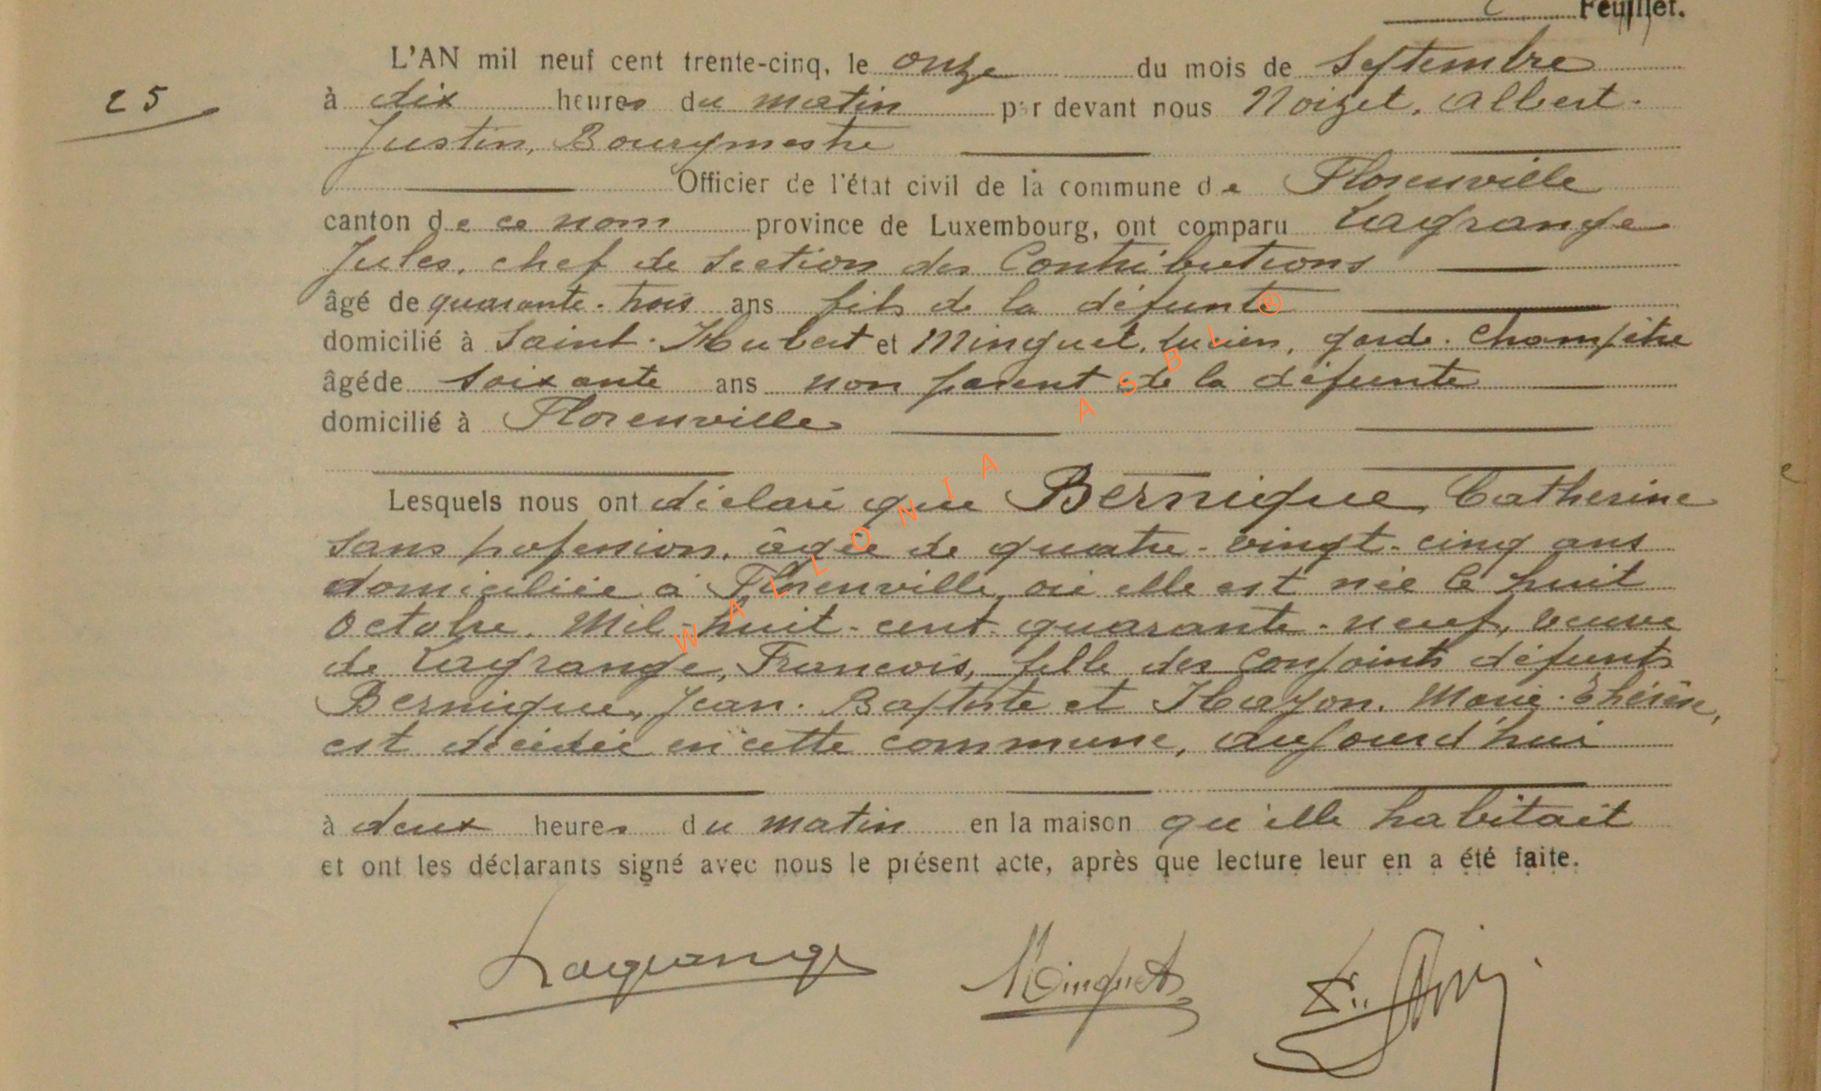 Feuillet.
L'AN mil neuf cent trente-cinq, le onze du mois de Septembre
25
à dix heures du matin par devant nous Noizet, Albert.
Justin, Bourgmestre
Officier de l'état civil de la commune de Florenville
canton de ce nom province de Luxembourg, ont comparu Lagrange
Jules, chef de section des Contributions
âgé de quarante-trois ans fils de la défunte
domicilié à Saint-Hubert et Minguet, Lucien, garde-champêtre
âgé de soixante ans non parent de la défunte
domicilié à Florenville
Lesquels nous ont déclaré que Bernique, Catherine
sans profession, âgée de quatre-vingt-cinq ans
domiciliée à Florenville, où elle est née le huit
Octobre. Mil-huit-cent-quarante-neuf, veuve
de Lagrange, François, fille des conjoints défunts
Bernique, Jean-Baptiste et Hayon, Marie-Thérèse,
est décédée en cette commune, aujourd'hui
à deux heures du matin en la maison qu'elle habitait
et ont les déclarants signé avec nous le présent acte, après que lecture leur en a été faite.
Lagrange Minguet
WALLONIA ASBL ®